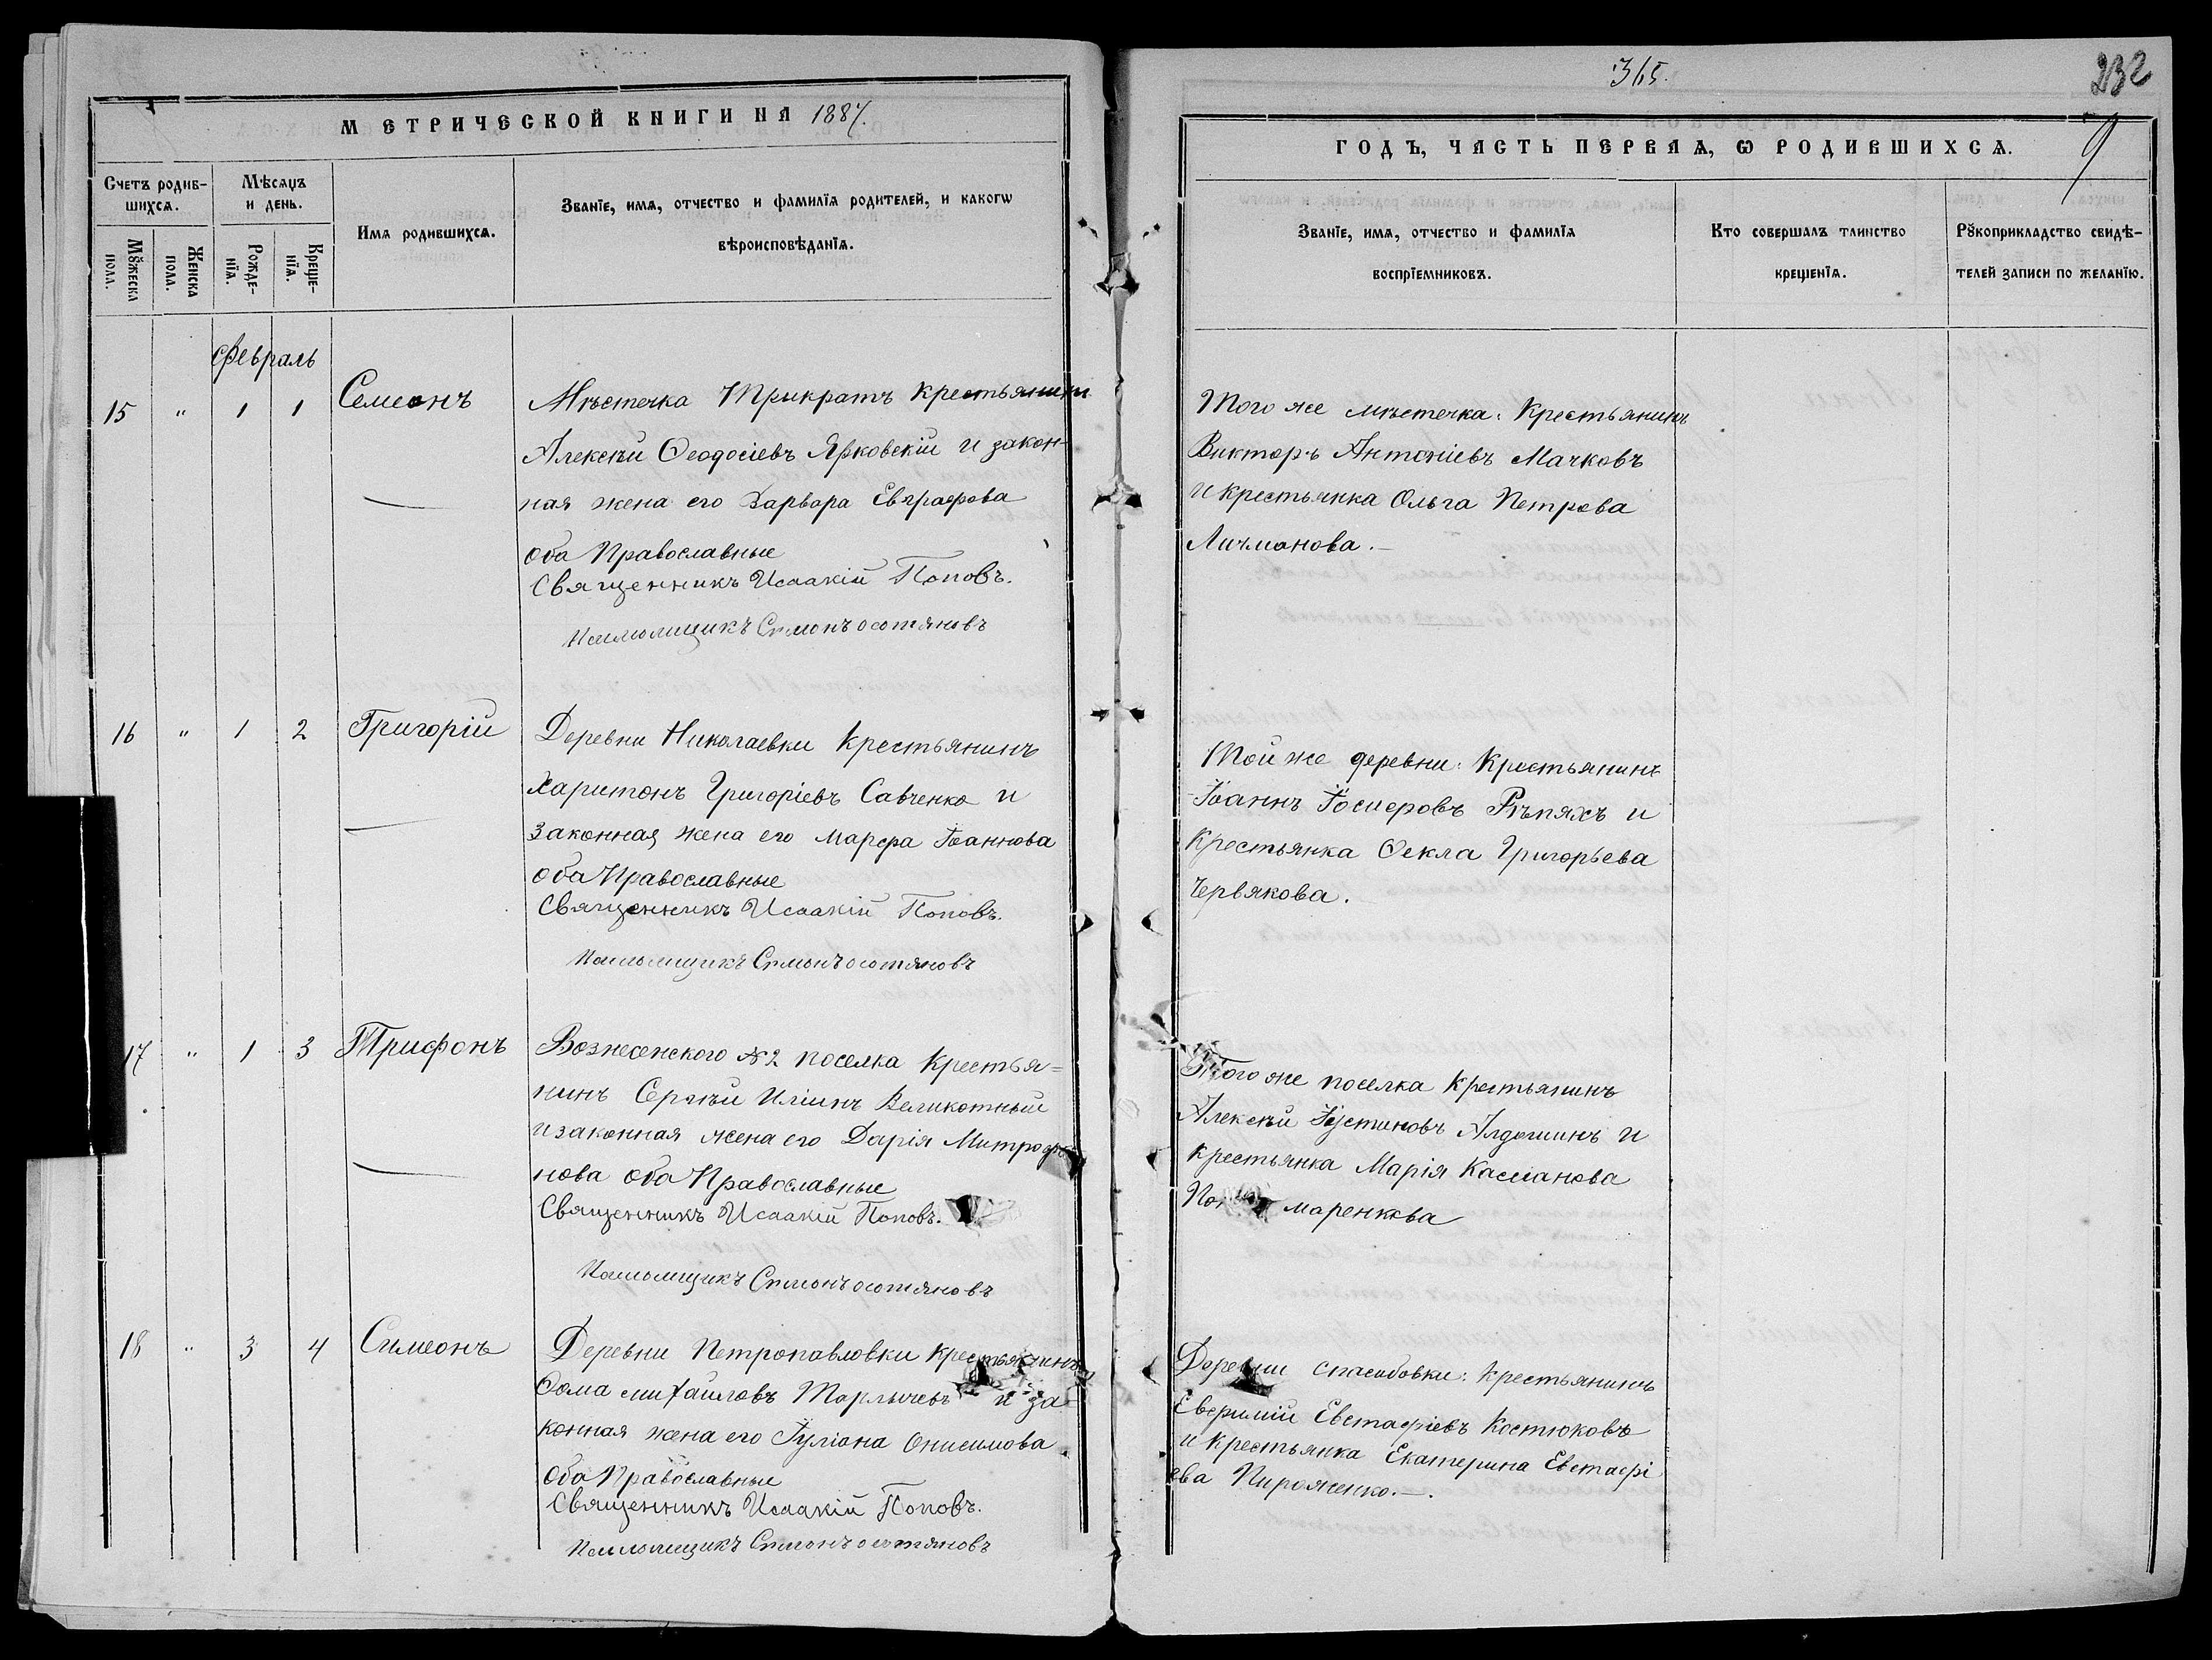 МЕТРИЧЕСКОЙ КНИГИ НА 1887.
Счетъ родив-
шихся.
Мѣсяцъ
и день.
Имя родившихся.
Званіе, имя, отчество и фамилія родителей, и какогѡ
вѣроисповѣданія.
Мꙋжеска
пола.
Женска
пола.
Рожде-
нія.
Креще-
нія.
Февраль
15 " 1 1 Семеонъ
Мѣстечка Трикратъ крестьянинъ
Алексѣй Ѳеодосіевъ Ярковскій и закон-
ная жена его Варвара Евграфова
оба Православные
Священникъ Исаакій Поповъ.
16 " 1 2 Григорій
Деревни Николаевки крестьянинъ
Харитонъ Григоріевъ Савченко и
законная жена его Марфа Іоаннова
оба Православные
Священникъ Исаакій Поповъ.
17 " 1 3 Трифонъ
Вознесенского №2 поселка крестья=
нинъ Сергѣй Иліинъ Великотный
и законная жена его Дарія Митрофа
нова оба Православные
Священникъ Исаакій Поповъ.
18 " 3 4 Симеонъ
Деревни Петропавловки крестьянинъ
Ѳома Михаиловъ и за
конная жена его Іуліана Онисимова
оба Православные
Священникъ Исаакій Поповъ.
365.
232
9
ГОДЪ, ЧАСТЬ ПЕРВАЯ, Ѡ РОДИВШИХСЯ.
Званіе, имя, отчество и фамилія
воспріемниковъ.
Кто совершалъ таинство
крещенія.
Рꙋкоприкладство свидѣ-
телей записи по желанію.
Того же мѣстечка: крестьянинъ
Викторъ Антоніевъ Мачковъ
и крестьянка Ольга Петрова
Личманова.-
Той же деревни: Крестьянинъ
Іоаннъ Іосифовъ Рѣпяхъ и
крестьянка Ѳекла Григорьева
Червякова.
Того же поселка крестьянинъ
Алексѣй Іустиновъ Алдошинъ и
крестьянка Марія Касіанова
маренкова
Деревни Спасибовки: крестьянинъ
Евфимій Евстафіевъ Костюковъ
и крестьянка Екатерина Евстафі
ева Пироженко.-.